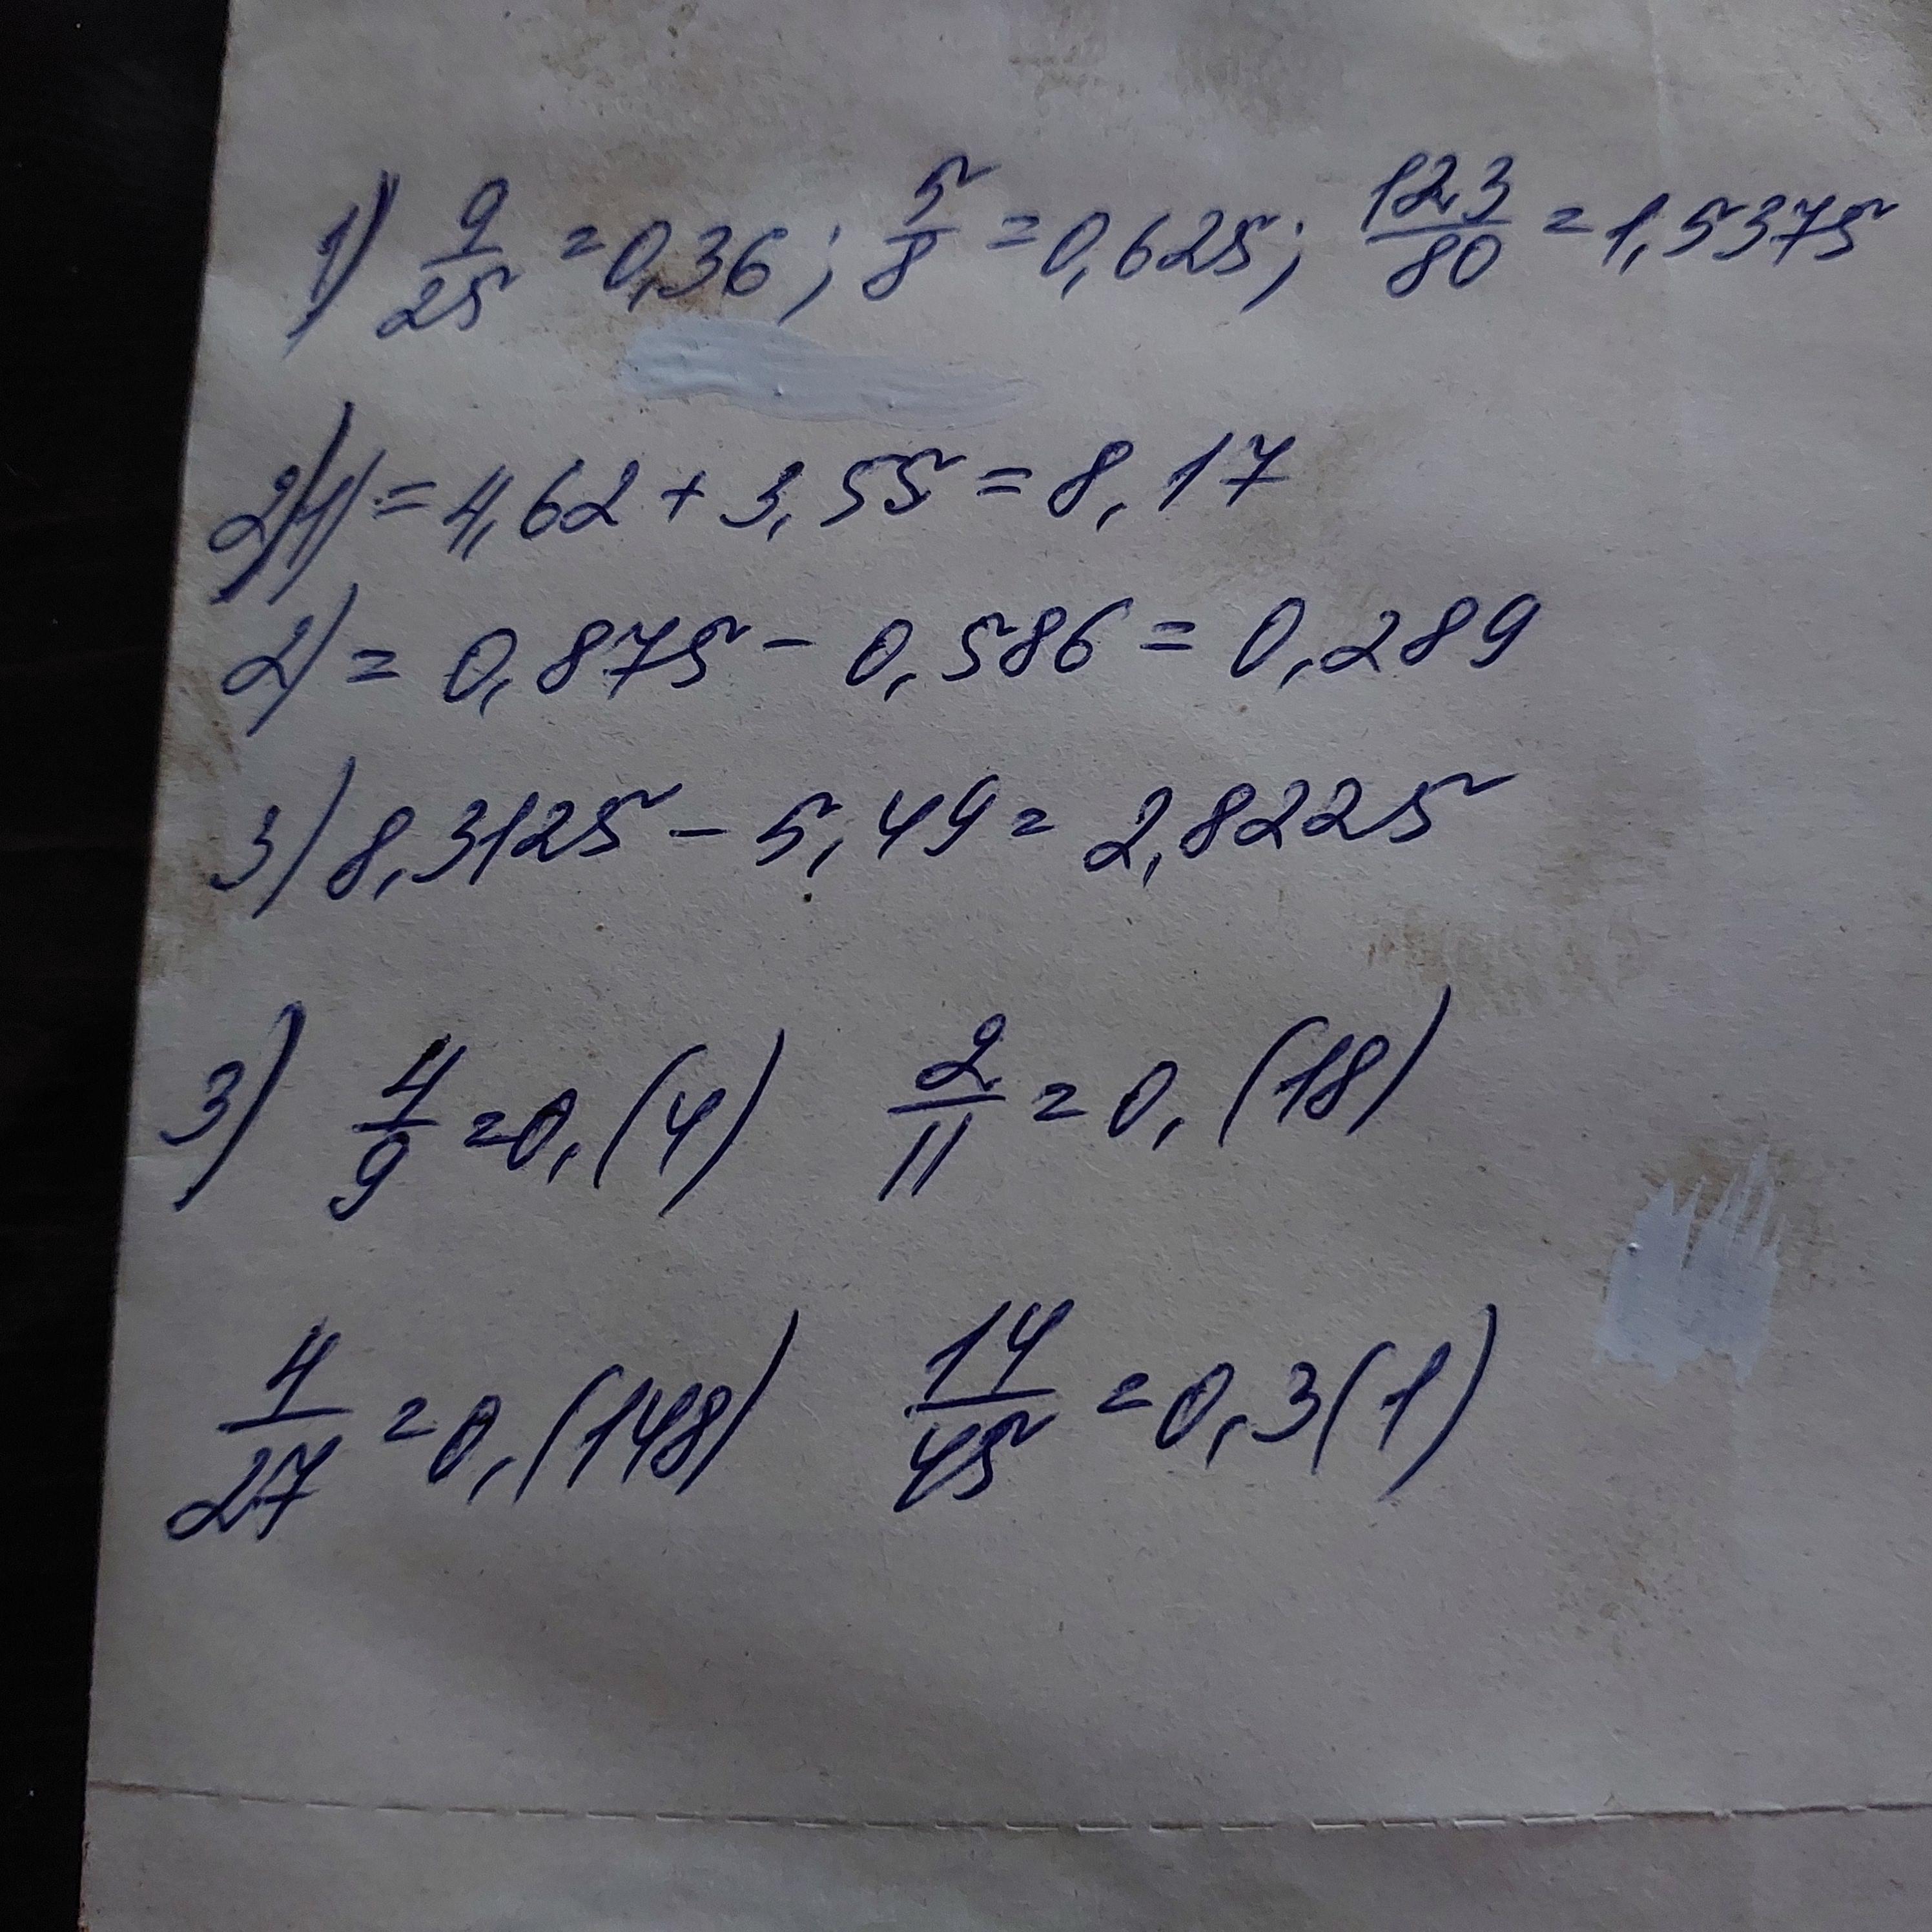 1) 9/25 = 0,36; 5/8 = 0,625; 123/80 = 1,5375
2) 1) = 4,62 + 3,55 = 8,17
2) = 0,875 - 0,586 = 0,289
3) 8,3125 - 5,49 = 2,8225
3) 4/9 = 0,(4) 2/11 = 0,(18)
4/27 = 0,(148) 14/45 = 0,3(1)